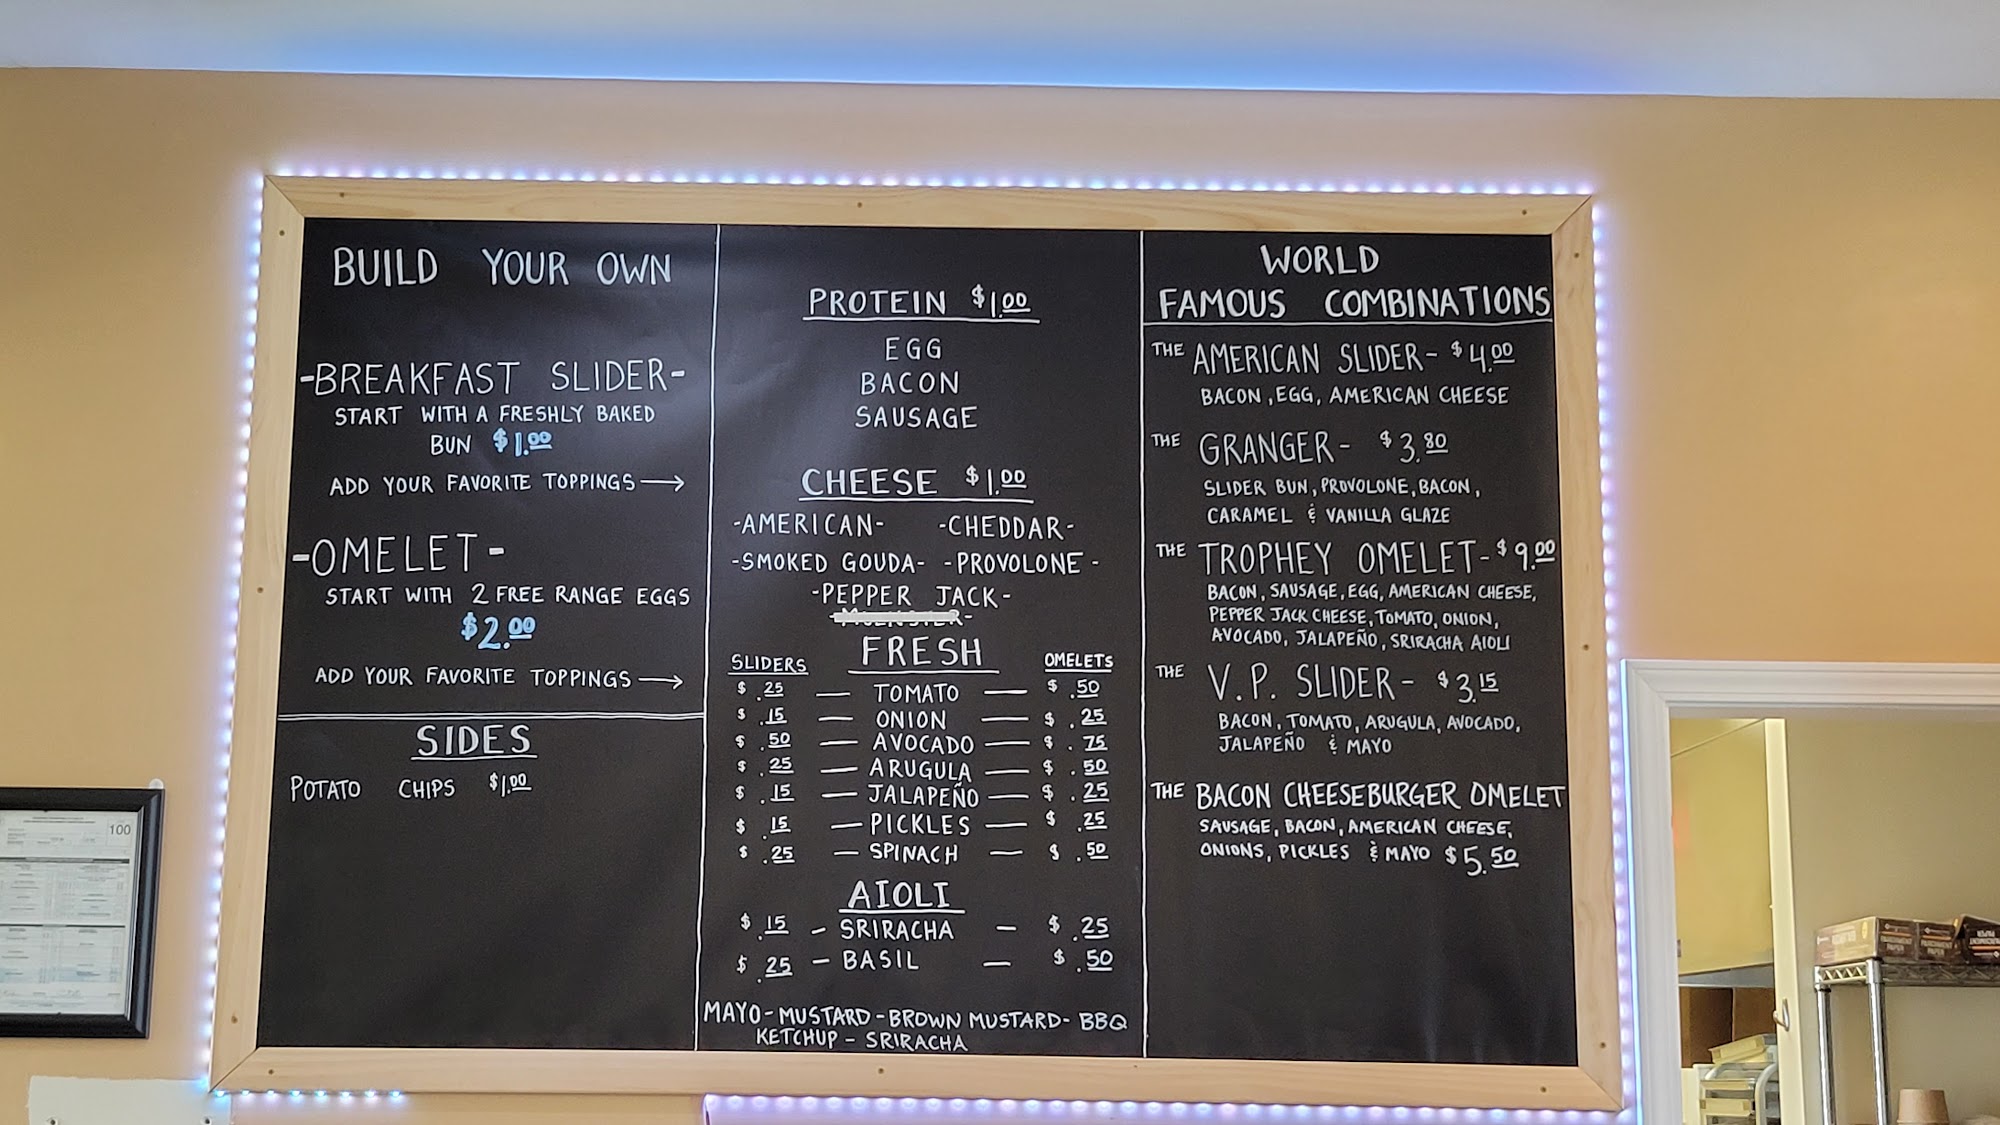 BUILD YOUR OWN
-BREAKFAST SLIDER-
START WITH A FRESHLY BAKED
BUN $1.00
ADD YOUR FAVORITE TOPPINGS →
-OMELET-
START WITH 2 FREE RANGE EGGS
$2.00
ADD YOUR FAVORITE TOPPINGS →
SIDES
POTATO CHIPS $1.00
PROTEIN $1.00
EGG
BACON
SAUSAGE
CHEESE $1.00
-AMERICAN- -CHEDDAR-
-SMOKED GOUDA- -PROVOLONE-
-PEPPER JACK-
FRESH
SLIDERS OMELETS
$.25 — TOMATO — $.50
$.15 — ONION — $.25
$.50 — AVOCADO — $.75
$.25 — ARUGULA — $.50
$.15 — JALAPEÑO — $.25
$.15 — PICKLES — $.25
$.25 — SPINACH — $.50
AIOLI
$.15 - SRIRACHA — $.25
$.25 - BASIL — $.50
MAYO - MUSTARD - BROWN MUSTARD - BBQ
KETCHUP - SRIRACHA
WORLD
FAMOUS COMBINATIONS
THE AMERICAN SLIDER - $4.00
BACON, EGG, AMERICAN CHEESE
THE GRANGER - $3.80
SLIDER BUN, PROVOLONE, BACON,
CARAMEL & VANILLA GLAZE
THE TROPHEY OMELET - $9.00
BACON, SAUSAGE, EGG, AMERICAN CHEESE,
PEPPER JACK CHEESE, TOMATO, ONION,
AVOCADO, JALAPEÑO, SRIRACHA AIOLI
THE V.P. SLIDER - $3.15
BACON, TOMATO, ARUGULA, AVOCADO,
JALAPEÑO & MAYO
THE BACON CHEESEBURGER OMELET
SAUSAGE, BACON, AMERICAN CHEESE,
ONIONS, PICKLES & MAYO $5.50
100